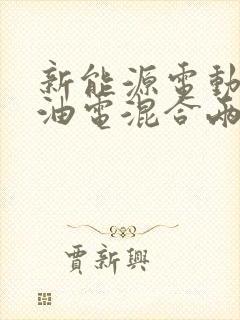 新能源電動
油電混合兩
賈新興